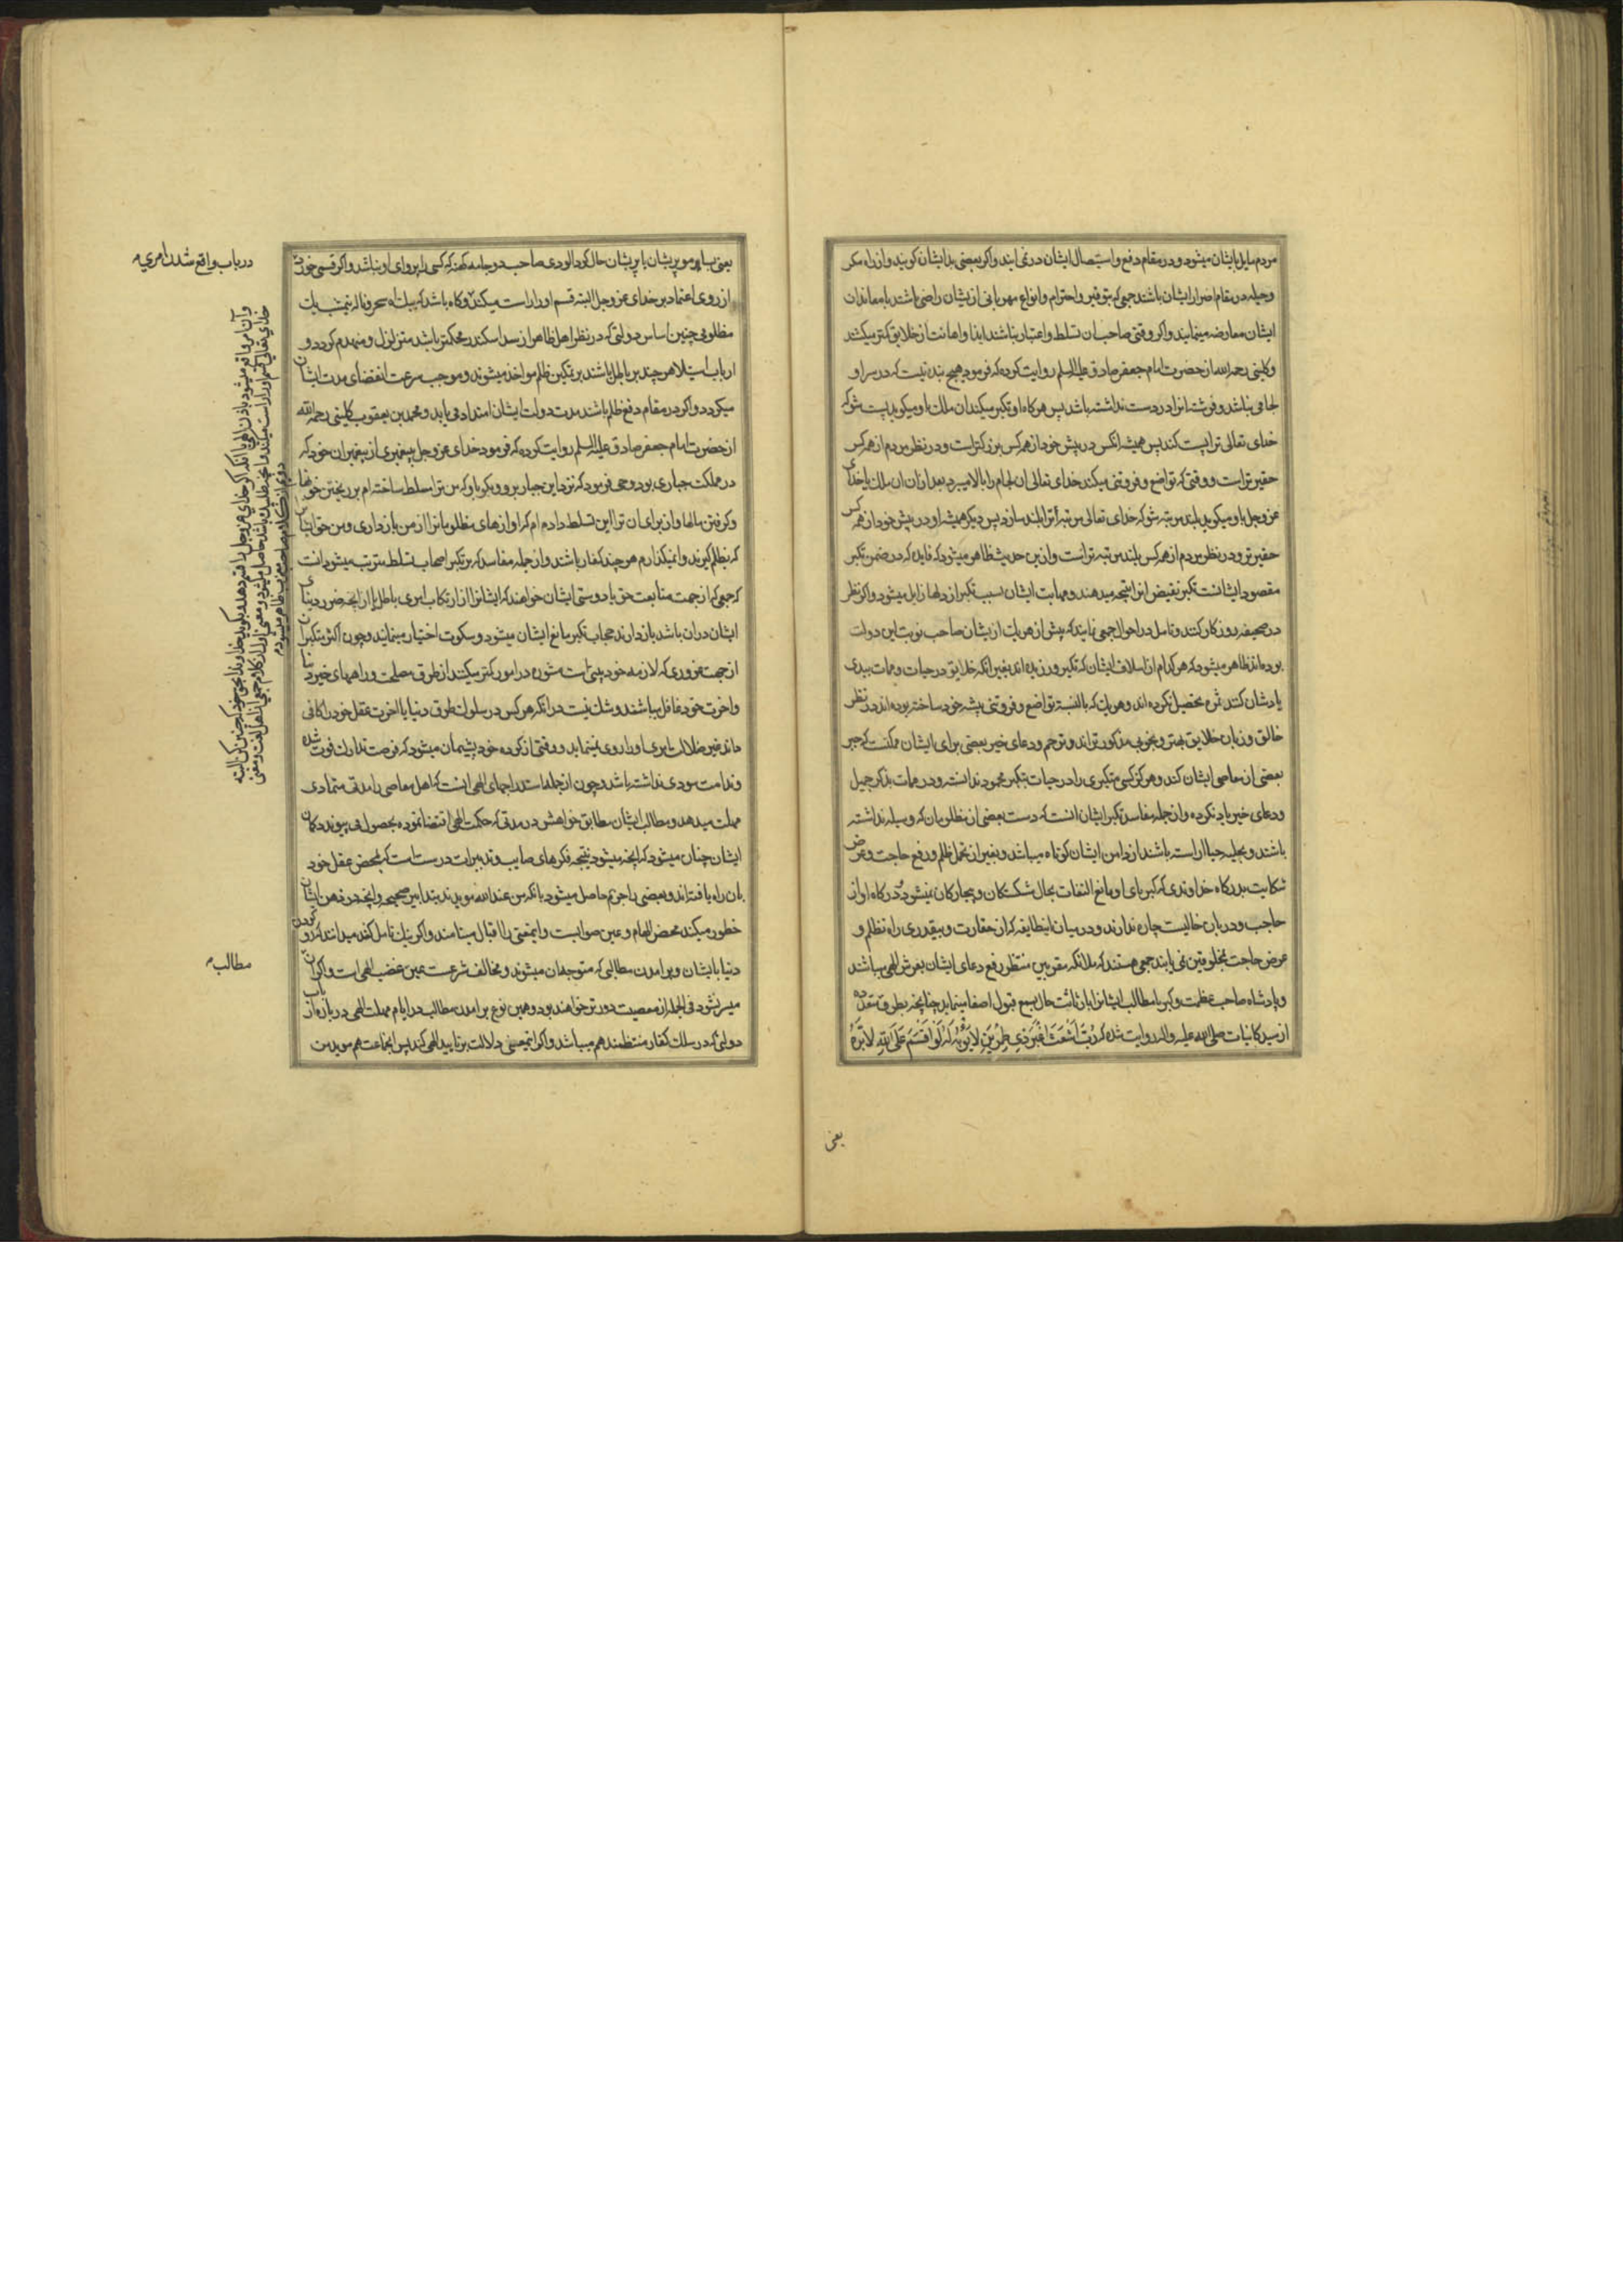 مردم مایل بایشان میشود و در مقام دفع و استیصال ایشان در نمی ایند و اگر بعضی بد ایشان گویند و از راه مکر
و حیله در مقام اضرار ایشان باشند جمعی که بتوقیر و احترام و انواع مهربانی از یشان راضی باشند با معاندان
ایشان معارضه مینمایند و اگر وقتی صاحب ان تسلط و اعتبار نباشند ایذا و اهانت از خلایق کمتر میکشند
و کلینی رحمه الله از حضرت امام جعفر صادق علیه السلم روایت کرده که فرمود هیچ بنده نیست که در سر او
لجامی نباشد و فرشته انرا در دست نداشته باشد پس هر کاه او تکبر میکند ان ملک باو میگوید پست شو که
خدای تعالی ترا پست کند پس همیشه انکس در پیش خود از همه کس بزرکتر است و در نظر مردم از همه کس
حقیرتر است و وقتی که تواضع و فروتنی میکند خدای تعالی ان لجام را بالا میبرد بعد از ان ان ملک یا خدای
عز و جل باو میگوید بلند مرتبه شو که خدای تعالی مرتبه ترا بلند سازد پس دیگر همیشه او در پیش خود از همه کس
حقیرتر و در نظر مردم از همه کس بلند مرتبه تر است و از ین حدیث ظاهر میشود که فایده که در ضمن تکبر
مقصود ایشانست تکبر نقیض انرا نتیجه میدهد و مهابت ایشان بسبب تکبر از دلها زایل میشود و اگر نظر
در صحیفه روزکار کنند و تامل در احوال جمعی نمایند که پیش از هر یک از یشان صاحب نوبت این دولت
بوده اند ظاهر میشود که هر کدام از اسلاف ایشان که تکبر ورزیده اند بغیر انکه خلایق در حیات و ممات ببدی
یادشان کنند ثمره تحصیل نکرده اند و هر یک که بالنسبه تواضع و فروتنی پیشه خود ساخته بوده اند در نظر
خالق و زبان خلایق بهتر و بخوبی مذکورتر اند و ترحم و دعای خیر بعضی برای ایشان ممکنست که جبر
بعضی از معاصی ایشان کند و هرگز کسی متکبری را در حیات بتکبر محمود ندانسته و در ممات بذکر جمیل
و دعای خیر یاد نکرده و از جمله مفاسد تکبر ایشان انست که دست بعضی از مظلومان که وسیله نداشته
باشند و بحلیه حیا اراسته باشند از دامن ایشان کوتاه میباشد و بغیر از تحمل ظلم و رفع حاجت و عرض
شکایت بدرکاه خداوندی که کبریای او مانع التفات بحال شکستکان و بیچارکان نمیشود و درکاه او از
حاجب و دربان خالیست چاره ندارند و در میان انطایفه که از حقارت و بیقدری راه تظلم و
عرض حاجت بمخلوقین نمی یابند جمعی هستند که ملائکه مقربین منتظر رفع دعای ایشان بعرش الهی میباشند
و پادشاه صاحب عظمت و کبریا مطالب ایشانرا بسمع قبول اصغا مینماید چنانچه بطرق متعدده
از سید کاینات صلی الله علیه و اله روایت شده که رُبَّ اَشْعَثَ اَغْبَرَ ذِی طِمْرَیْنِ لا یُؤْبَهُ لَهُ لَوْ اَقْسَمَ عَلَی اللهِ لاَبَرَّهُ
یعنی
یعنی بسا موپریشان یا پریشان حال گرد الودی صاحب دو جامه کهنه که کسی را پروای او نباشد و اگر قسمی خورد
از روی اعتماد بر خدای عز و جل البته قسم او را راست میکند و کاه باشد که بیک اه سحر و ناله نیمشب یک
مظلومی چنین اساس دولتی که در نظر اهل ظاهر از سد اسکندر محکمتر باشد متزلزل و منهدم گردد و
ارباب استیلا هر چند بر باطل باشند بر تمکین ظلم مواخذ میشوند و موجب سرعت انقضای مدت ایشان
میکردد و اگر در مقام دفع ظلم باشند مدت دولت ایشان امتداد می یابد و محمد بن یعقوب کلینی رحمه الله
از حضرت امام جعفر صادق علیه السلم روایت کرده که فرمود خدای عز و جل پیغمبری از پیغمبران خود که
در مملکت جباری بود وحی فرمود که نزد این جبار برو و بگو باو که من ترا مسلط نساخته ام بر ریختن خونها
و گرفتن مالها و از برای ان ترا این تسلط داده ام که اوازهای مظلومانرا از من بازداری و من حق ایشان
که بظلم گیرند وانمیگذارم هر چند کفار باشند و از جمله مفاسد که بر تکبر اصحاب تسلط مترتب میشود انست
که جمعی که از جهت متابعت حق یا دوستی ایشان خواهند که ایشانرا از ارتکاب امری باطل یا از انچه ضرر دنیای
ایشان دران باشد بازدارند حجاب تکبر مانع ایشان میشود و سکوت اختیار مینمایند و چون اکثر متکبران
از جهت غروری که لازمه خود بینی است مشوره در امور کمتر میکنند از طرق مصلحت و راههای خیر دنیا
و اخرت خود غافل میباشند و شک نیست در انکه هر کس در سلوک طرق دنیا یا اخرت عقل خود را کافی
داند غیر ضلالت امری او را روی نمینماید و وقتی از کرده خود پشیمان میشود که فرصت تدارک فوت شده
و ندامت سودی نداشته باشد و چون از جمله استدراجهای الهی انست که اهل معاصی را مدتی متمادی
مهلت میدهد و مطالب ایشان مطابق خواهش در مدتی که حکمت الهی اقتضا نموده بحصول می پیوندد گمان
ایشان چنان میشود که انچه میشود نتیجه فکرهای صایب و تدبیرات درست است که بمحض عقل خود
بان راه یافته اند و بعضی را جزم حاصل میشود بانکه من عند الله موید بتدابیر صحیحه و انچه در ذهن ایشان
خطور میکند محض الهام و عین صوابست و اینمعنی را اقبال مینامند و اگر نیک تامل کنند میدانند که رو کردن
دنیا بایشان و برامدن مطالبی که متوجه ان میشوند و مخالف شرعست عین غضب الهی است و اگر ان
میسر نشود فی الجمله از معصیت دورتر خواهند بود و همین نوع برامدن مطالب در ایام مهلت الهی درباره ارباب
دولتی که در سلک کفار منتظمند هم میباشد و اگر اینمعنی دلالت بر تایید الهی کند پس انجماعت هم موید من
در باب واقع شدن امری
مطالب